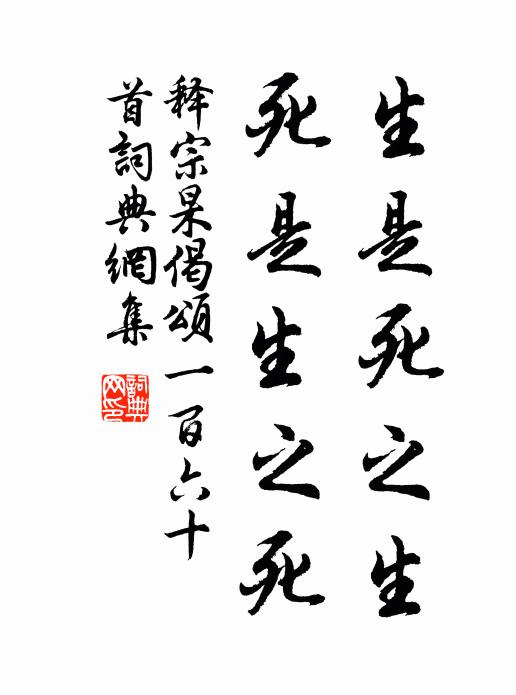 生是死之生
死是生之死
释宗杲偈頌一百六十
首詞典網集
詞典
网印